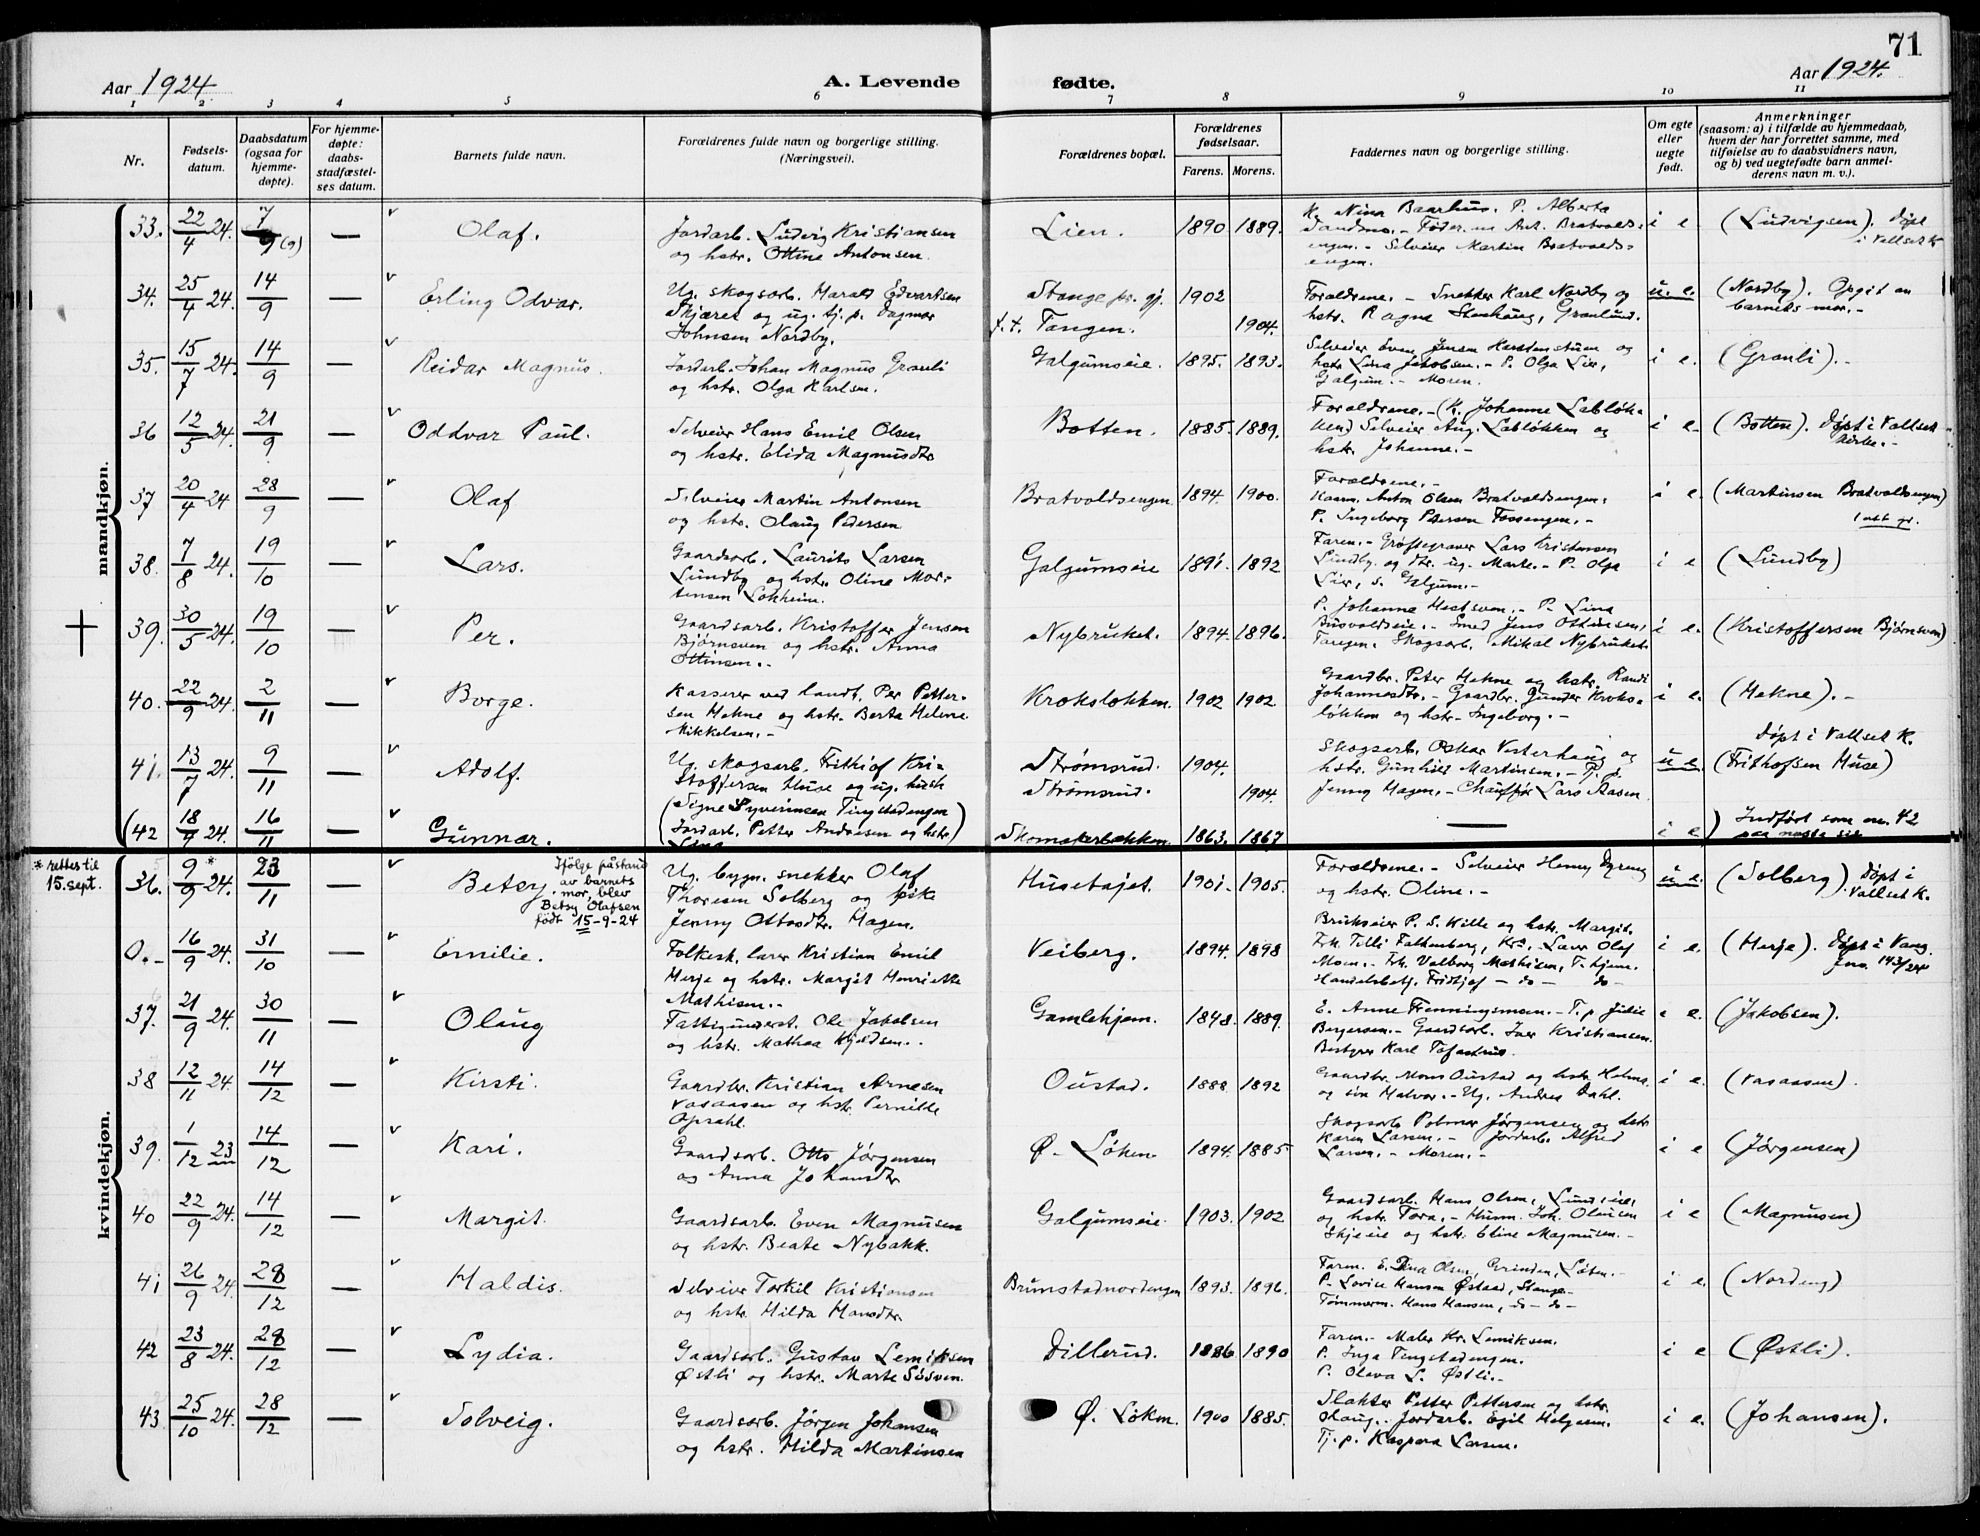 71
Aar 1924.
A. Levende
fødte.
Aar 1924.
1 2 3 4 5 6 7 8 9 10 11
Nr.
Fødsels-
datum.
Daabsdatum
(ogsaa for
hjemme-
døpte).
For hjemme-
døpte:
daabs-
stadfæstel-
ses datum.
Barnets fulde navn.
Forældrenes fulde navn og borgerlige stilling.
(Næringsvei).
Forældrenes bopæl.
Forældrenes
fødselsaar.
Farens. Morens.
Faddernes navn og borgerlige stilling.
Om egte
eller
uegte
født.
Anmerkninger
(saasom: a) i tilfælde av hjemmedaab,
hvem der har forrettet samme, med
tilføielse av to daabsvidners navn,
og b) ved uegtefødte barn anmel-
derens navn m. v.).
mandkjøn.
33. 22/4 24. 7/9 (9) — Olaf.
Jordarb. Ludvig Kristiansen
og hstr. Ottine Antonsen.
Lien. 1890 1889.
K. Nina Baarhus. P. Alberta
Sandmo. –
Selveier Martin Bratvolds-
engen.
i e (Ludvigsen). Døpt
i Vallset K.
34. 25/4 24. 14/9 — Erling Odvar.
Ug. skogsarb. Harald Edvartsen
Skjæret og ug. tj. p. Dagmar
Johnsen Nordby.
Stange pr. gj. 1902
f. t. Tangen. 1904.
Forældrene. – Snekker Karl Nordby og
hstr. Ragna Stenhaug, Granlund.
u. e. (Nordby). Opgit av
barnets mor. –
35. 15/7 24. 14/9 — Reidar Magnus.
Jordarb. Johan Magnus Granli
og hstr. Olga Karlsen.
Galgumseie. 1895. 1893.
Selveier Even Jensen Karstenstuen og
hstr. Lina Jakobsen. – P. Olga Lier,
Galgum. – Moren.
i e. (Granli). –
36 12/5 24. 21/9 — Oddvar Paul.
Selveier Hans Emil Olsen
og hstr. Elida Magnusdtr
Botten. 1885. 1889.
Forældrene. – (K. Johanne Labløk-
ken) Selveier Aug. Labløkken og
hstr. Johanne. –
i e. (Botten). Døpt i Vallset
kirke. –
37 20/4 24 28/9 — Olaf
Selveier Martin Antonsen
og hstr. Olaug Pedersen
Bratvoldsengen. 1894. 1900.
Forældrene. –
Kaarm. Anton Olsen Bratvoldsengen.
P. Ingeborg Petersen Fossengen. –
i e. (Martinsen Bratvoldsengen)
38. 7/8 24. 19/10 — Lars.
Gaardsarb. Laurits Larsen
Lundby og hstr. Oline Mor-
tensen Løkheim.
Galgumseie 1891. 1892
Faren. – Grøftegraver Lars Kristensen
Lundby og dtr. ug. Marte. – P. Olga
Lier, s. Galgum. –
i e (Lundby)
39. 30/5 24. 19/10 — Per.
Gaardsarb. Kristoffer Jensen
Bjørnsven og hstr. Anna
Ottinsen. –
Nybruket. 1894. 1896.
P. Johanna Mostsven. – P. Lina
Busvoldseie. – Smed Jens Ottinsen,
Tangen. Skogsarb. Mikal Nybruket.
i e. (Kristoffersen Bjørnsven)
40. 22/9 24. 2/11 — Borge.
Kasserer ved landt. Per Petter-
sen Hekne og hstr. Berta Helene
Mikkelsen. –
Kroksløkken. 1902 1902
Gaardbr. Peter Hekne og hstr. Randi
Johannesdtr. – Gaardbr. Gunder Kroks-
løkken og hstr. Ingeborg. –
i e. (Hekne). –
41. 13/7 24. 9/11 — Adolf.
Ug. skogsarb. Frithiof Kri-
stoffersen Huse og ug. hush
Signe Syverinsen Tingstadengen
Strømsrud. 1904.
Strømsrud. 1904.
Skogsarb. Oskar Vesterhaug og
hstr. Gunhild Martinsen. – Tj. p.
Jenny Hagen. – Chauffør Lars Aasen
u. e. Døpt i Vallset K.
(Frithofsen Huse)
(42 18/9 24. 16/11 — Gunnar.
(Jordarb. Petter Andresen og hstr)
Lina
Skomakerbakken. 1863. 1867
—
i e) Indført som nr. 42
paa næste side
kvindekjøn.
* rettes til
15. sept.
36. 9*/9 24. 23/11 — Betsy
Ifølge påstand
av barnets
mor, blev
Betsy Olafsen
født 15-9-24
Ug. bygn. snekker Olaf
Thoresen Solberg og pike
Jenny Ottosdtr. Hagen.
Husetajet. 1901. 1905.
Forældrene. – Selveier Henry Dyreng
og hstr. Oline. –
u. e. (Solberg) Døpt i
Vallset K.
0. – 16/9 24. 31/10 — Emilie.
Folkesk. lærer Kristian Emil
Herje og hstr. Margit Henriette
Mathisen. –
Veiberg. 1894. 1898
Brukseier P. S. Kille og hstr. Margit.
Frk. Tilli Falkenberg, Kra. Lærer Olaf
Moen. – Frk. Valborg Mathisen, T.hjem.
Handelsbetj. Fridtjof – do – do –
i e. (Herje). Døpt i Vang.
Jno. 143/24
37. 21/9 24. 30/11 — Olaug
Fattigunderst. Ole Jakobsen
og hstr. Mathea Kjeldsen. .
Gamlehjem. 1848. 1889.
E. Anne Frenningsmoen. – T. p. Julie
Bergersen. – Gaardsarb. Iver Kristiansen.
Bestyrer Karl Tofastrud.
i e. (Jakobsen).
38 12/11 24. 14/12 — Kirsti.
Gaardbr. Kristian Arnesen
Vasaasen og hstr. Pernille
Opsahl.
Oustad. 1888. 1892
Gaardbr. Mons Oustad og hstr. Helma.
og søn Halvor. – Ug. Andrea Dahl.
i e. (Vasaasen).
39. 1/12 23 14/12 — Kari.
Gaardsarb. Otto Jørgensen
og Anna Johansdtr
Ø. Løken 1894. 1885
Skogsarb Palmar Jørgensen og hstr.
Karen Larsen. – Jordarb. Alfred
Larsen. – Moren. –
i e (Jørgensen)
40 22/9 24. 14/12 — Margit.
Gaardsarb. Even Magnusen
og hstr. Beate Nybakk.
Galgumseie. 1903. 1902
Gaardsarb. Hans Olsen, Lundseie,
og hstr. Tora. – Husm. Joh. Olausen
Skjeseie og hstr. Eline Magnusen. –
i e (Magnusen)
41 26/9 24. 28/12 — Haldis.
Selveier Torkil Kristiansen
og hstr. Hilda Hansdtr.
Brunstadnordengen 1893. 1896.
Farm. E. Dina Olsen, Grinden, Løten. –
P. Lovise Hansen Østaad, Stange –
Tømmerm. Hans Hansen, do – do –
i e. (Nordeng)
42 23/8 24. 28/12 — Lydia.
Gaardsarb. Gustav Lemiksen
Østli og hstr. Marte Søsven.
Dillerud. 1886 1890
Faren. – Maler Kr. Lemiksen.
P. Inga Tingstadengen.
P. Olava L. Østli. –
i e (Østli).
43. 25/10 24. 28/12 — Solveig.
Gaardsarb. Jørgen Johansen
og hstr. Hilda Martinsen
Ø. Løken. 1900 1885.
Slakter Petter Pettersen og hstr.
Olaug. Jordarb. Egil Helgesen.
Tj. p. Kaspara Larsen.
i e. (Johansen).